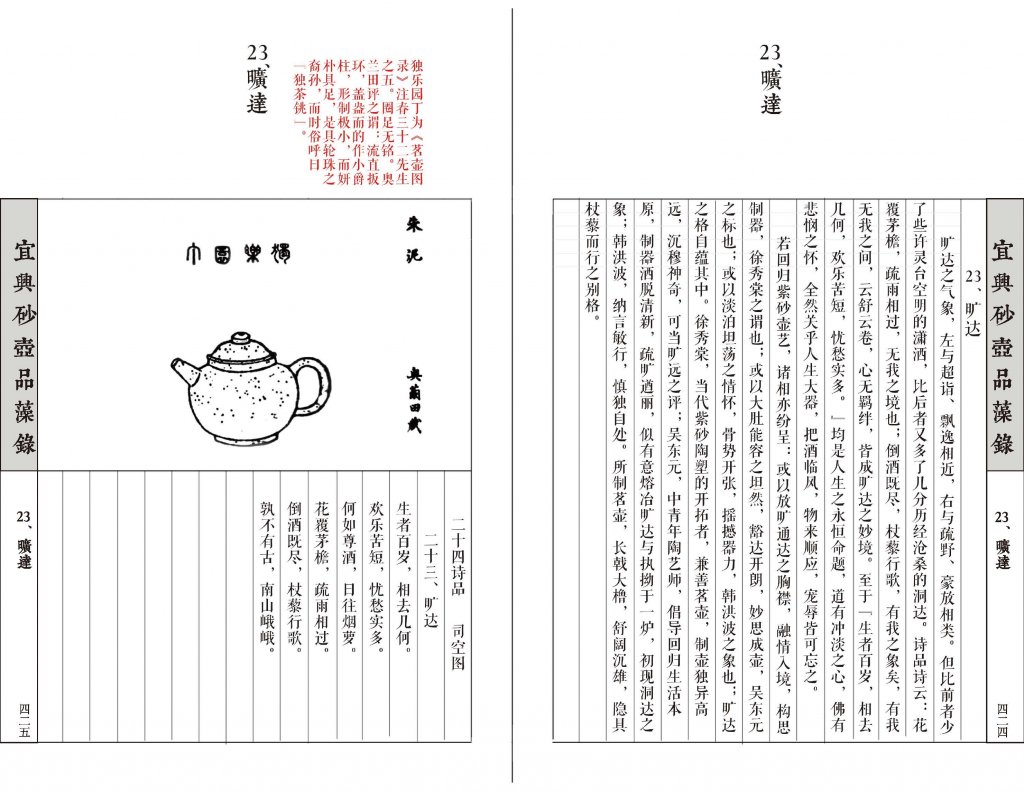 23、曠達
宜興砂壺品藻錄
23、曠達
四二四
23、旷达
旷达之气象，左与超诣、飘逸相近，右与疏野、豪放相类。但比前者少
了些许灵台空明的潇洒，比后者又多了几分历经沧桑的洞达。诗品诗云：花
覆茅檐，疏雨相过，无我之境也；倒酒既尽，杖藜行歌，有我之象矣，有我
无我之间，云舒云卷，心无羁绊，皆成旷达之妙境。至于「生者百岁，相去
几何，欢乐苦短，忧愁实多。」均是人生之永恒命题，道有冲淡之心，佛有
悲悯之怀，全然关乎人生大器，把酒临风，物来顺应，宠辱皆可忘之。
若回归紫砂壶艺，诸相亦纷呈：或以放旷通达之胸襟，融情入境，构思
制器，徐秀棠之谓也；或以大肚能容之坦然，豁达开朗，妙思成壶，吴东元
之标也；或以淡泊坦荡之情怀，骨势开张，摇撼器力，韩洪波之象也；旷达
之格自蕴其中。徐秀棠，当代紫砂陶塑的开拓者，兼善茗壶，制壶独异高
远，沉穆神奇，可当旷远之评；吴东元，中青年陶艺师，倡导回归生活本
原，制器洒脱清新，疏旷遒丽，似有意熔冶旷达与执拗于一炉，初现洞达之
象；韩洪波，纳言敏行，慎独自处。所制茗壶，长戟大橹，舒阔沉雄，隐具
杖藜而行之别格。
独乐园丁为《茗壶图
录》注春三十二先生
之五。圈足无铭。奥
兰田评之谓：流直扳
环，盖盎而的作小爵
柱，形制极小，而妍
朴具足，是具轮珠之
裔孙，而时俗呼曰
「独茶铫」。
23、曠達
朱泥
奥蘭田藏
獨樂園丁
二十四诗品　司空图
二十三、旷达
生者百岁，相去几何。
欢乐苦短，忧愁实多。
何如尊酒，日往烟萝。
花覆茅檐，疏雨相过。
倒酒既尽，杖藜行歌。
孰不有古，南山峨峨。
宜興砂壺品藻錄
23、曠達
四二五